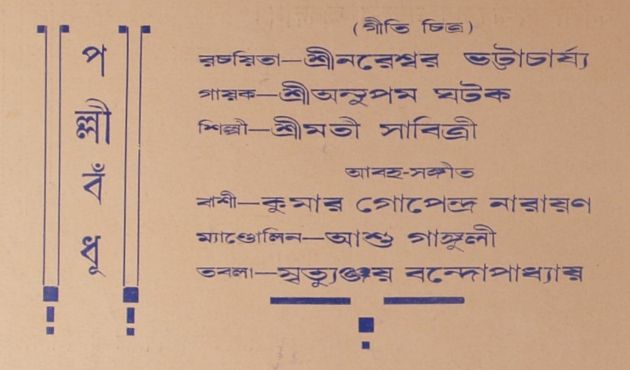 পল্লীবঁধূ
(গীতি চিত্র)
রচয়িতা—শ্রীনরেশ্বর ভট্টাচার্য্য
গায়ক—শ্রীঅনুপম ঘটক
শিল্পী—শ্রীমতী সাবিত্রী
আবহ-সঙ্গীত
বাশী—কুমার গোপেন্দ্র নারায়ণ
ম্যাণ্ডোলিন—আশু গাঙ্গুলী
তবলা—মৃত্যুঞ্জয় বন্দোপাধ্যায়